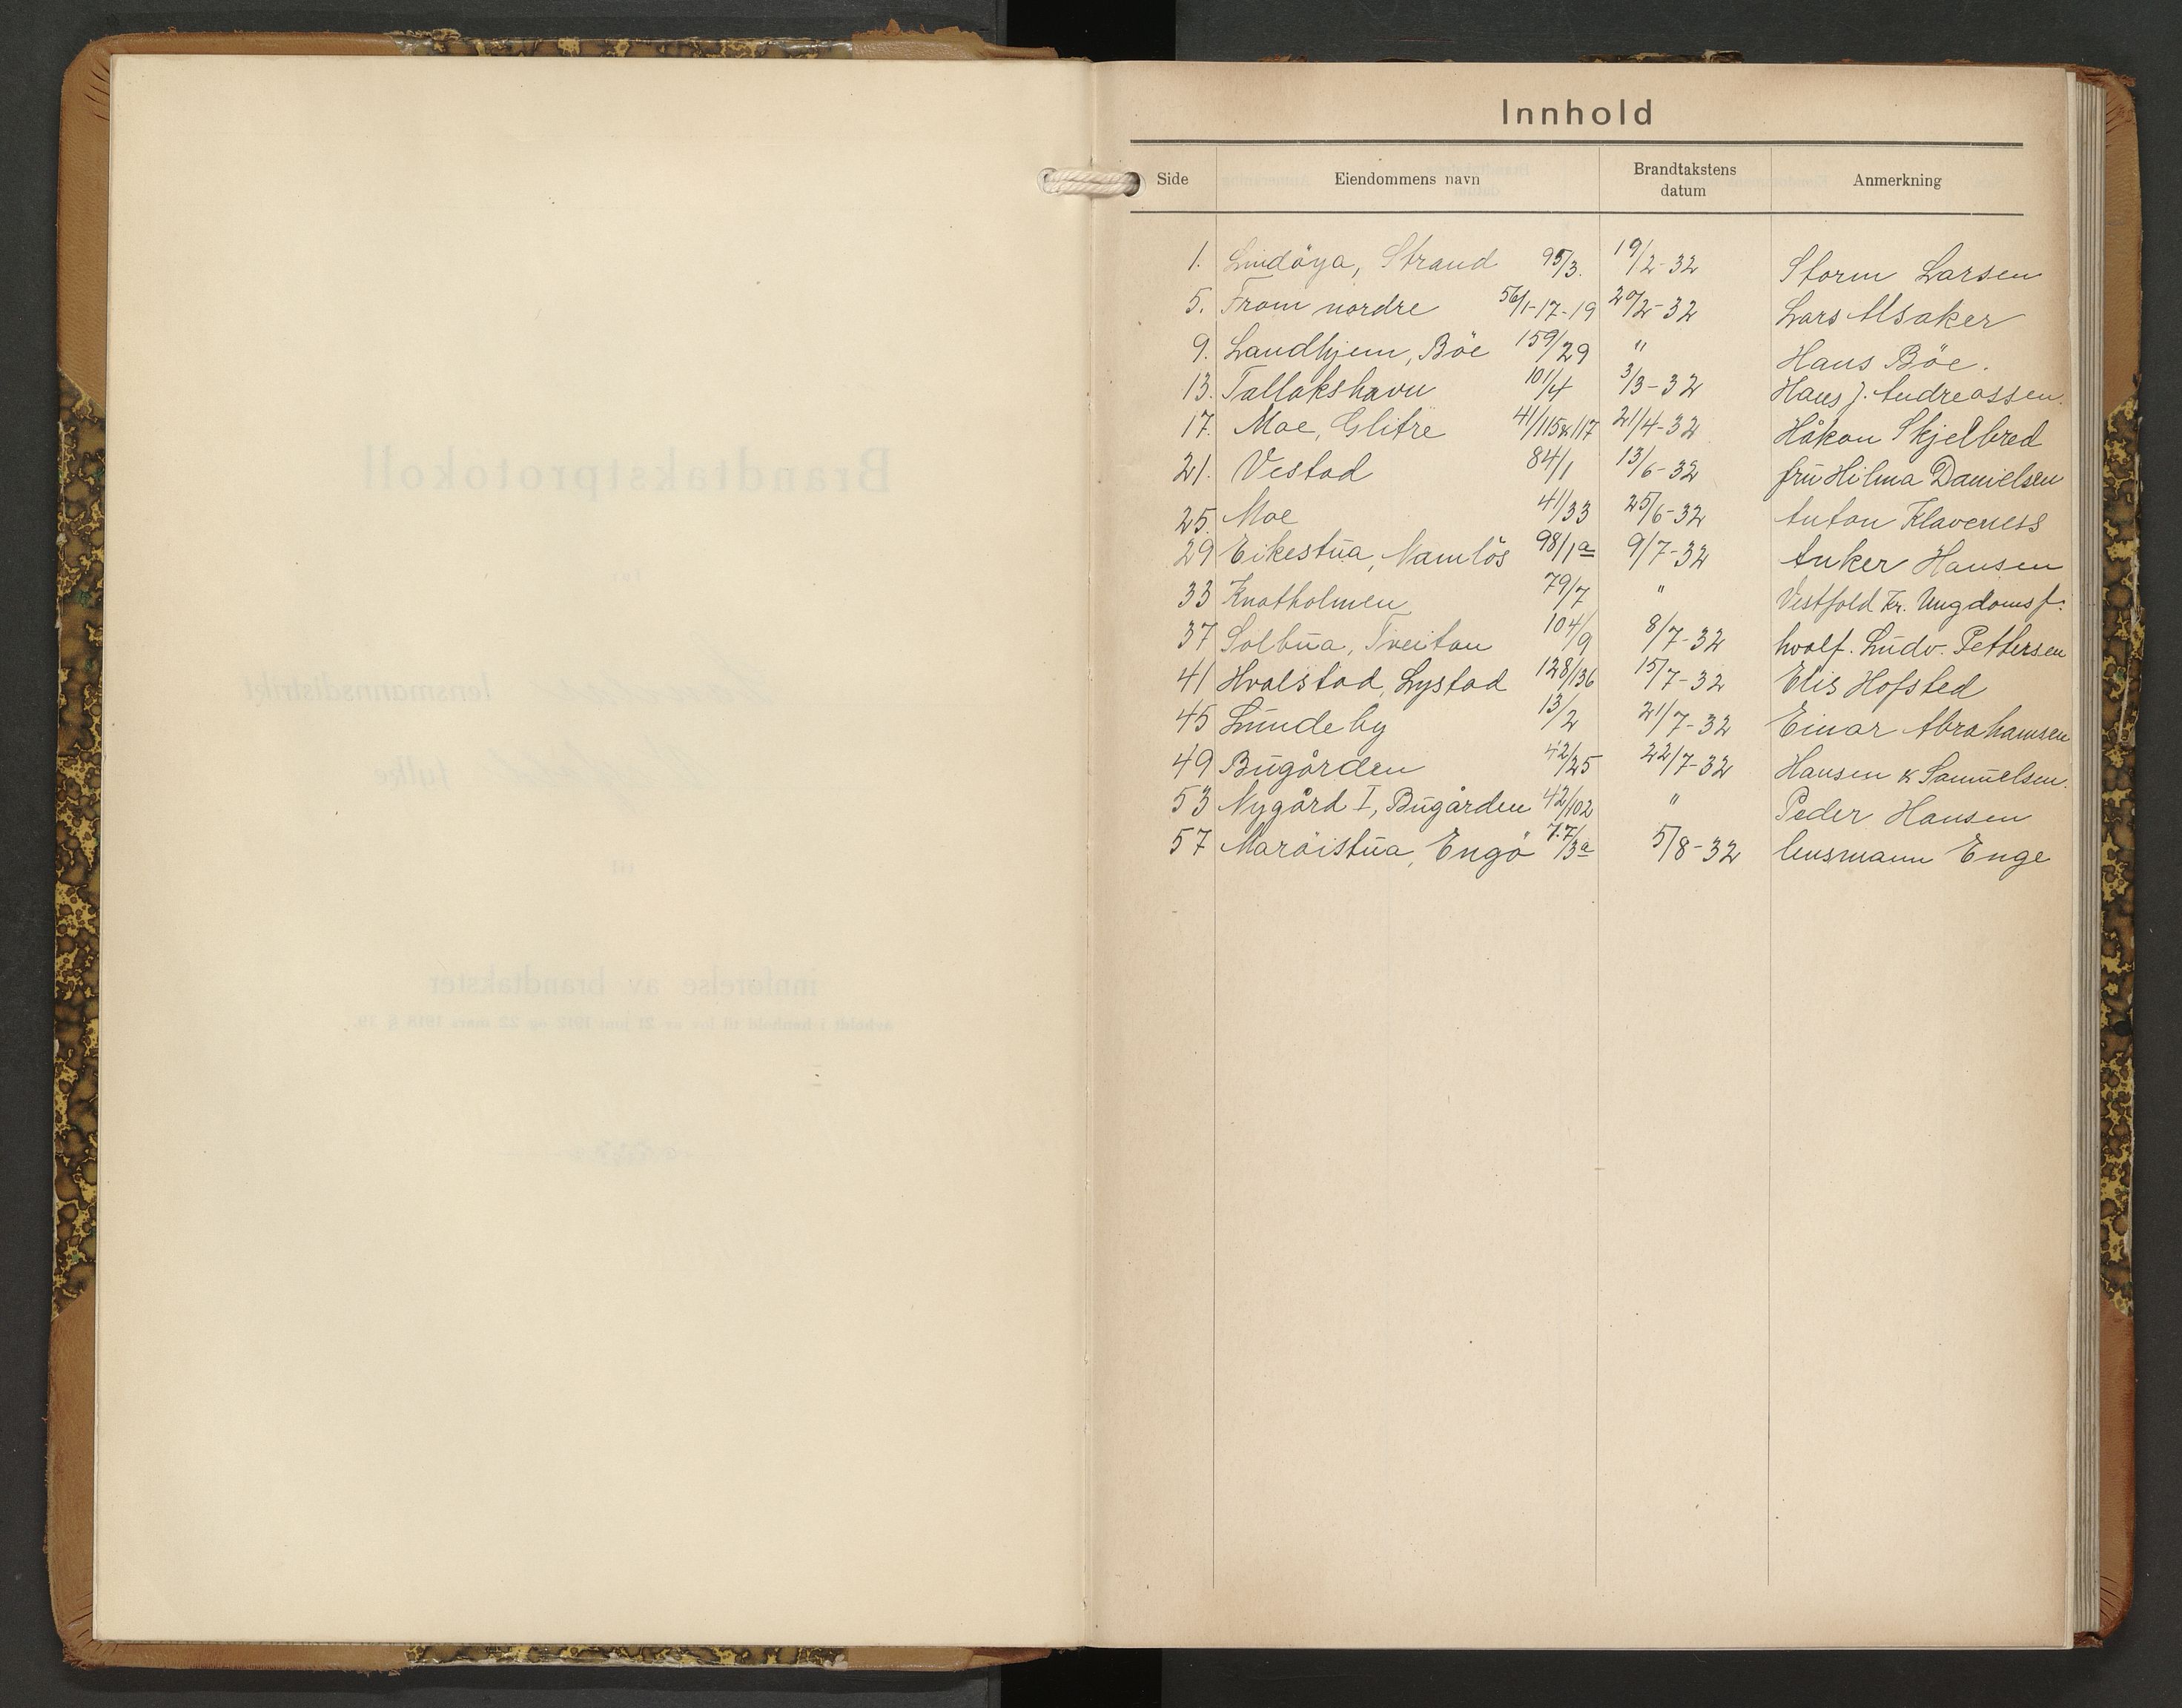 Innhold
Side Eiendommens navn Brandtakstens datum Anmerkning
1. Lindöya, Strand 95/3. 19/2-32 Storm Larsen
5. From nordre 56/1-17-19 20/2-32 Lars Alsaker
9. Landhjem, Böe 159/29 " Hans Böe.
13. Tallakshavn 101/4 3/3-32 Hans J. Andreassen.
17. Moe, Glitre 41/115&117 21/4-32 Håkon Skjelbred
21. Vestad 84/1 13/6-32 fru Hilma Danielsen
25. Moe 41/33 25/6-32 Anton Klaveness
29 Eikestua, Namlös 98/1a 9/7-32 Anker Hansen
33 Knatholmen 79/7 " Vestfold Kr. Ungdomsf.
37 Solbua, Tveitan 104/9 8/7-32 hvalf. Ludv. Pettersen
41 Hvalstad, Lystad 128/136 15/7-32 Elis Hofsted
45 Lundeby 13/2 21/7-32 Einar Abrahamsen
49 Bugården 42/25 22/7-32 Hansen & Samuelsen.
53 Nygård I, Bugården 42/102 " Peder Hansen
57 Maröistua, Engö 77/3a 5/8-32 lensmann Enge
Brandtakstprotokoll
for
lensmannsdistrikt
fylke
til
innførelse av brandtakster
avholdt i henhold til lov av 21 juni 1912 og 22 mars 1918 § 19.